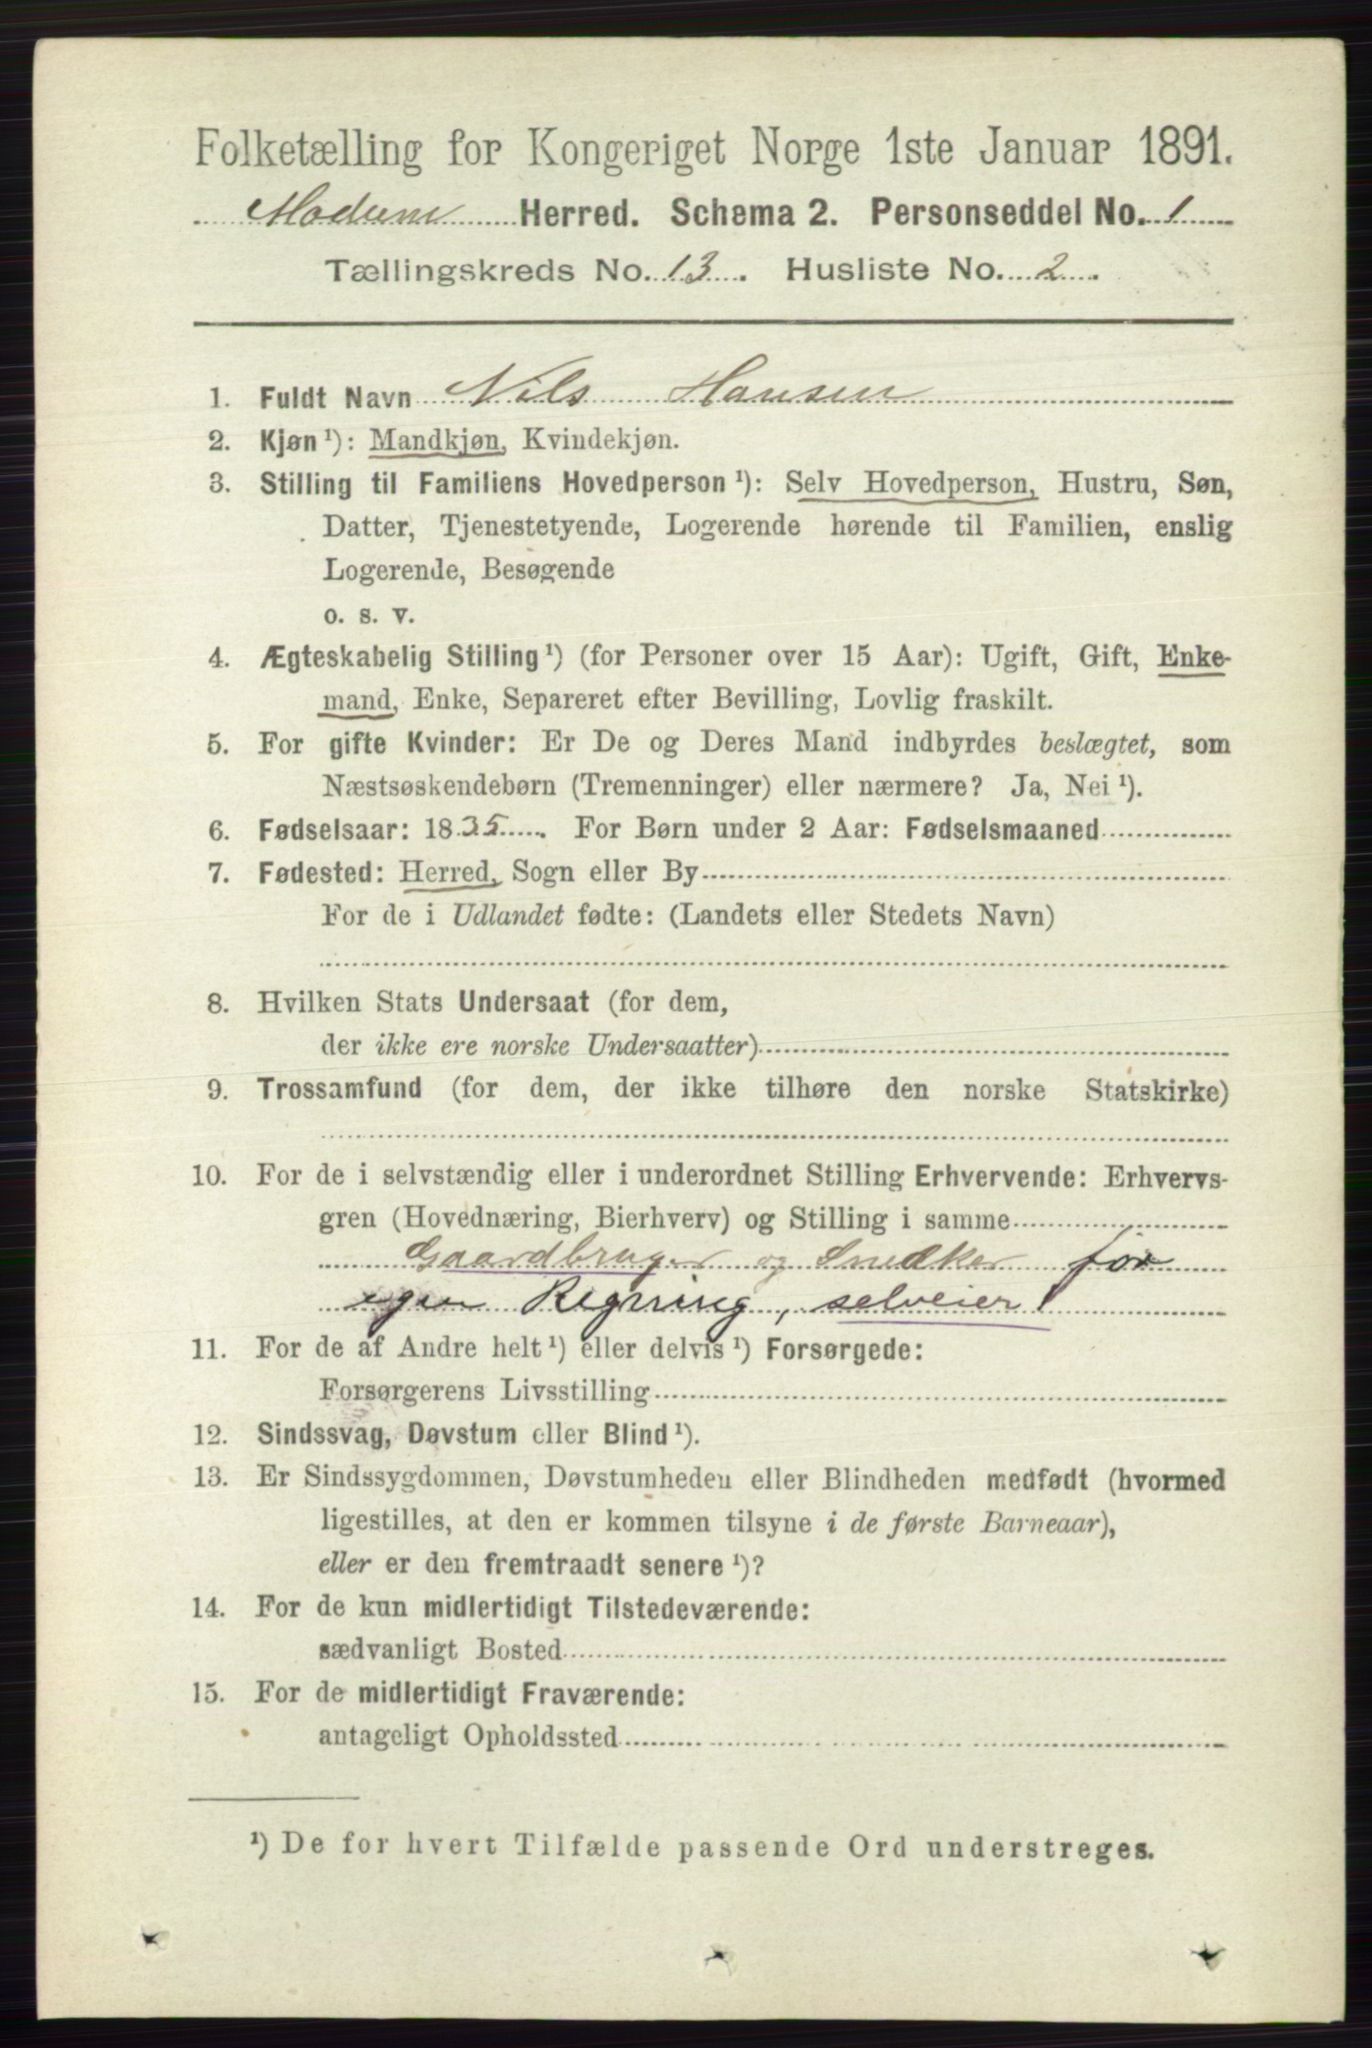 Folketælling for Kongeriget Norge 1ste Januar 1891.
Modum Herred. Schema 2. Personseddel No. 1
Tællingskreds No. 13. Husliste No. 2.
1. Fuldt Navn Nils Hansen
2. Kjøn ¹): Mandkjøn, Kvindekjøn.
3. Stilling til Familiens Hovedperson ¹): Selv Hovedperson, Hustru, Søn,
Datter, Tjenestetyende, Logerende hørende til Familien, enslig
Logerende, Besøgende
o. s. v.
4. Ægteskabelig Stilling ¹) (for Personer over 15 Aar): Ugift, Gift, Enke-
mand, Enke, Separeret efter Bevilling, Lovlig fraskilt.
5. For gifte Kvinder: Er De og Deres Mand indbyrdes beslægtet, som
Næstsøskendebørn (Tremenninger) eller nærmere? Ja, Nei ¹).
6. Fødselsaar: 1835. For Børn under 2 Aar: Fødselsmaaned
7. Fødested: Herred, Sogn eller By
For de i Udlandet fødte: (Landets eller Stedets Navn)
8. Hvilken Stats Undersaat (for dem,
der ikke ere norske Undersaatter)
9. Trossamfund (for dem, der ikke tilhøre den norske Statskirke)
10. For de i selvstændig eller i underordnet Stilling Erhvervende: Erhvervs-
gren (Hovednæring, Bierhverv) og Stilling i samme
Gaardbruger og Snedker for
egen Regning, selveier
11. For de af Andre helt ¹) eller delvis ¹) Forsørgede:
Forsørgerens Livsstilling
12. Sindssvag, Døvstum eller Blind ¹).
13. Er Sindssygdommen, Døvstumheden eller Blindheden medfødt (hvormed
ligestilles, at den er kommen tilsyne i de første Barneaar),
eller er den fremtraadt senere ¹)?
14. For de kun midlertidigt Tilstedeværende:
sædvanligt Bosted
15. For de midlertidigt Fraværende:
antageligt Opholdssted
¹) De for hvert Tilfælde passende Ord understreges.